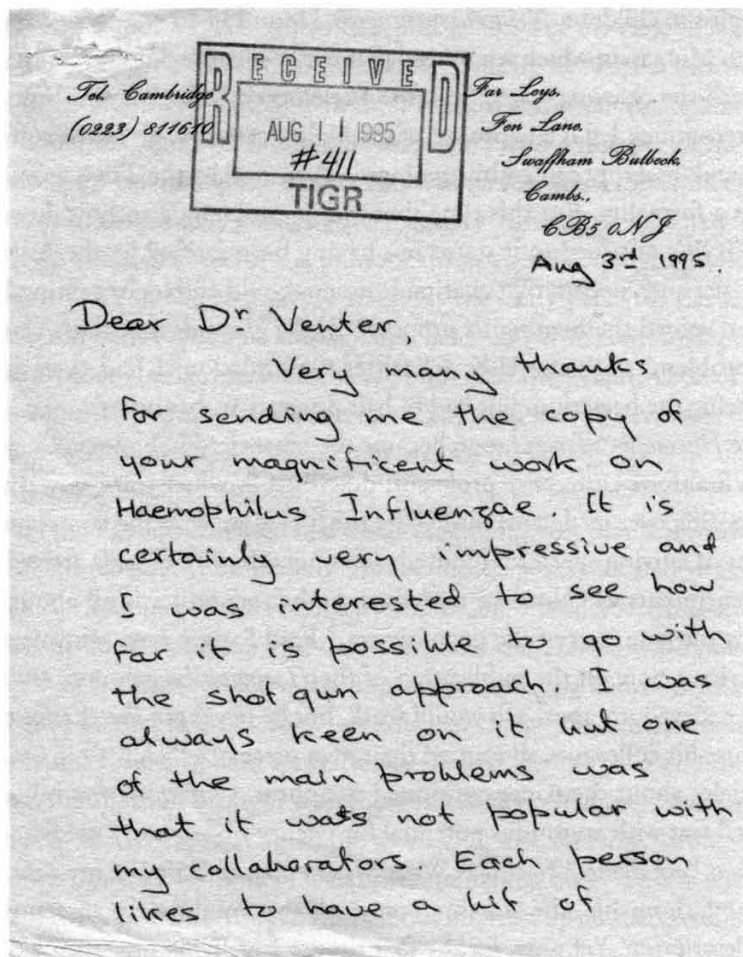 RECEIVED
AUG 11 1995
#411
TIGR
Tel. Cambridge
(0223) 811610
Far Loys,
Fen Lane,
Swaffham Bulbeck,
Cambs.,
CB5 0NJ
Aug 3rd 1995.
Dear Dr Venter,
Very many thanks
for sending me the copy of
your magnificent work on
Haemophilus Influenzae. It is
certainly very impressive and
I was interested to see how
far it is possible to go with
the shotgun approach. I was
always keen on it but one
of the main problems was
that it was not popular with
my collaborators. Each person
likes to have a bit of